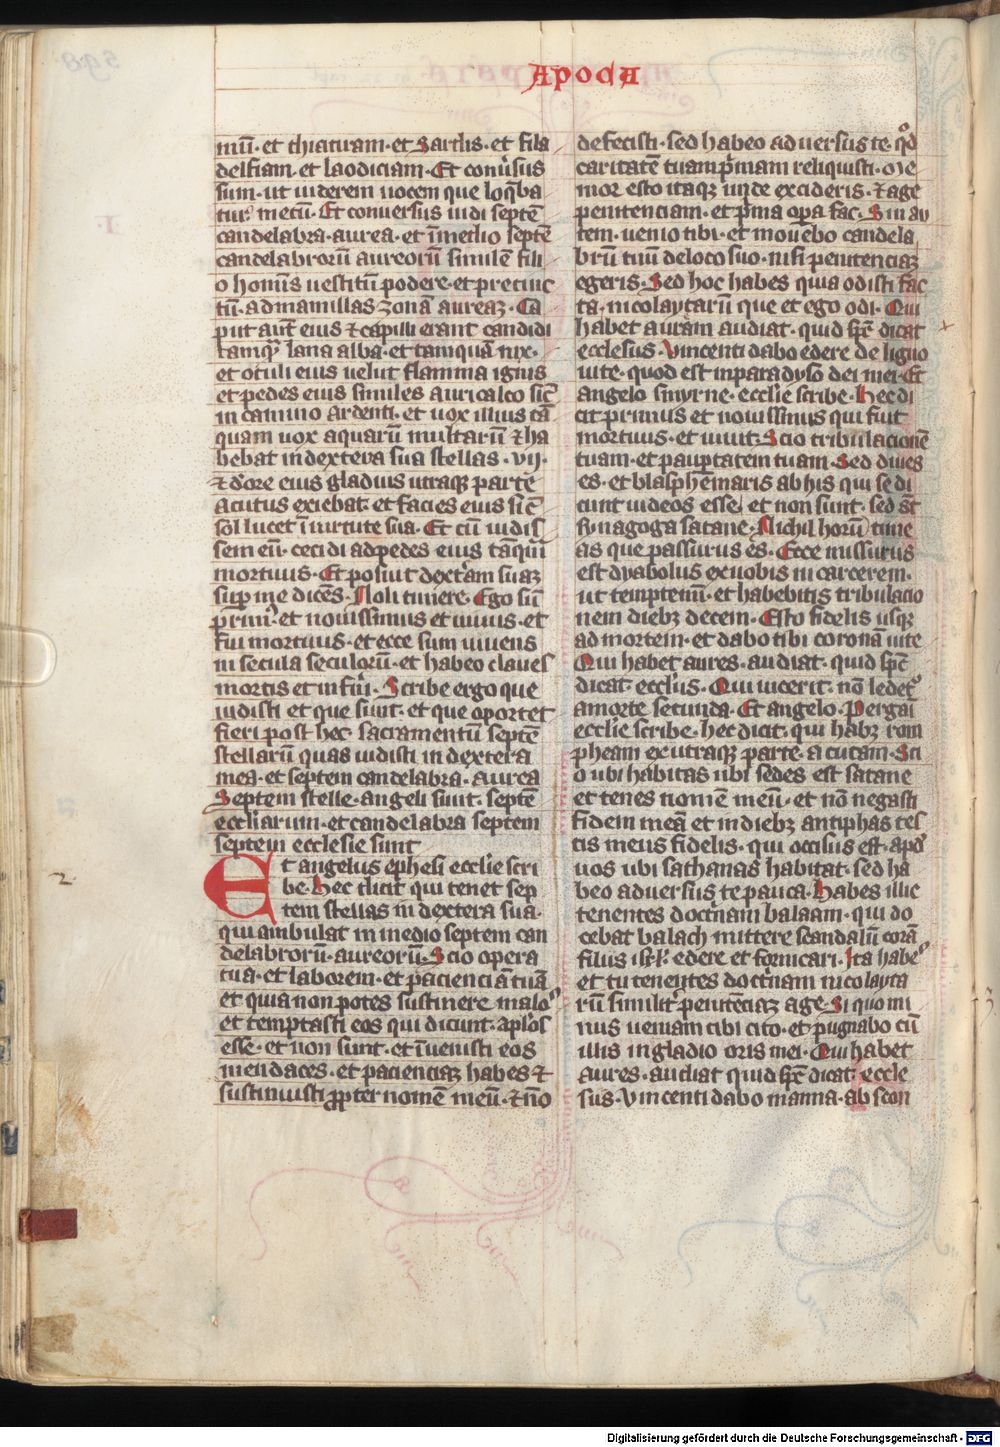 Apoca
mū· et thiatiram· et Sardis· et fila
delfiam· et laodiciam· Et conuͥsus
sum· ut uiderem uocem que loq̄ba
tur metū· Et conuersus uidi septē
candelabra· aurea· et ī medio septē
candelabrorū aureorū similē fili
o hominis uestitū podere· et precinc
tū· ad mamillas zonā aureaꝫ· Ca
put aut̄ eius ⁊ capilli erant candidi
tamqͣ lana alba· et tamquā nix·
et oculi eius uelut flamma ignis
et pedes eius similes auricalco sic̄
in camino ardenti· et uox illius tā
quam uox aquarū multarū ⁊ ha
bebat in dextera sua stellas· vij·
⁊ d͛ore eius gladius utraqꝫ parte
acutus exiebat· et facies eius sic̄
sol lucet ī uirtute sua· Et cū uidis
sem eū· cecidi ad pedes eius tāqͣm
mortuus· Et posuit dextͣam suaꝫ
sup̄ me dicēs· Noli timere· Ego sū
prim᷒ et nouissimus et uiuus· et
fui mortuus· et ecce sum uiuens
in secula seculorū· et habeo claues
mortis et inf̄ni· Scribe ergo que
uidisti et que sunt· et que oportet
fieri post hec· sacramentū septē
stellarū quas uidisti in dextera
mea· et septem candelabra· aurea
Septem stelle· angeli sunt· septē
eccl̄iarum· et candelabra septem
septem ecclesie sunt
2
Et angelus ephesi eccl̄ie scri
be· Hec dicit qui tenet sep
tem stellas in dextera sua·
qui ambulat in medio septem can
delabrorū· aureorū· Scio opera
tua· et laborem· et pacienciā tuā
et quia non potes sustinere malos
et temptasti eos qui dicunt· apl̄os
esse· et non sunt· et īuenisti eos
mendaces· et pacienciaꝫ habes ⁊
sustinuisti ꝓpter nomē meū· ⁊ nō
defecisti· sed habeo aduersus te· qͦd
caritatē tuam p̄mam reliquisti· Me
mor esto itaqꝫ unde excideris· ⁊ age
penitenciam· et p̄ma opa fac· Sin au
tem· uenio tibi· et mouebo candela
brū tuū de loco suo· nisi penitenciaꝫ
egeris· Sed hoc habes quia odisti fac
ta· nicolaytarū que et ego odi· Qui
habet auram audiat· quid sp̄c dicat
ecclesus· Vincenti dabo edere de ligno
uite· quod est in paradyso dei mei· Et
angelo smyrne· eccl̄ie scribe· Hec di
cit primus et nouissimus qui fuit
mortuus· et uiuit· Scio tribulacionē
tuam· et paup̄tatem tuam· Sed diues
es· et blasphemaris ab his qui se di
cunt iudeos esse· et non sunt· sed sūt
synagoga satane· Nichil horū time
as que passurus es· Ecce missurus
est dyabolus ex uobis in carcerem·
ut temptemī· et habebitis tribulacio
nem diebꝫ decem· Esto fidelis usqꝫ
ad mortem· et dabo tibi coronā uite
Qui habet aures· audiat· quid sp̄c
dicat· eccl̄iis· Qui uicerit· nō ledet᷒
a morte secunda· Et angelo· Pergai
eccl̄ie scribe· hec dicit· qui habꝫ rom
pheam ex utraqꝫ parte· acutam· Sci
o ubi habitas ubi sedes est satane
et tenes nomē meū· et nō negasti
fidem meā et in diebꝫ antiphas tes
tis meus fidelis· qui occisus est· apd᷒
uos ubi sathanas habitat· sed ha
beo aduersus te pauca· Habes illic
tenentes doctͥnam balaam· qui do
cebat balach mittere scandalū corā
filiis isrl̄· edere et fornicari· Ita habes
et tu tenentes doctͥnam nicolayta
rū similit͛ penitēciaꝫ age· Si quo mi
nus ueniam tibi cito· et pugnabo cū
illis in gladio oris mei· Qui habet
Aures· audiat quid sp̄c dicat· eccle
sus· Vincenti dabo manna· abscon
Digitalisierung gefördert durch die Deutsche Forschungsgemeinschaft - DFG